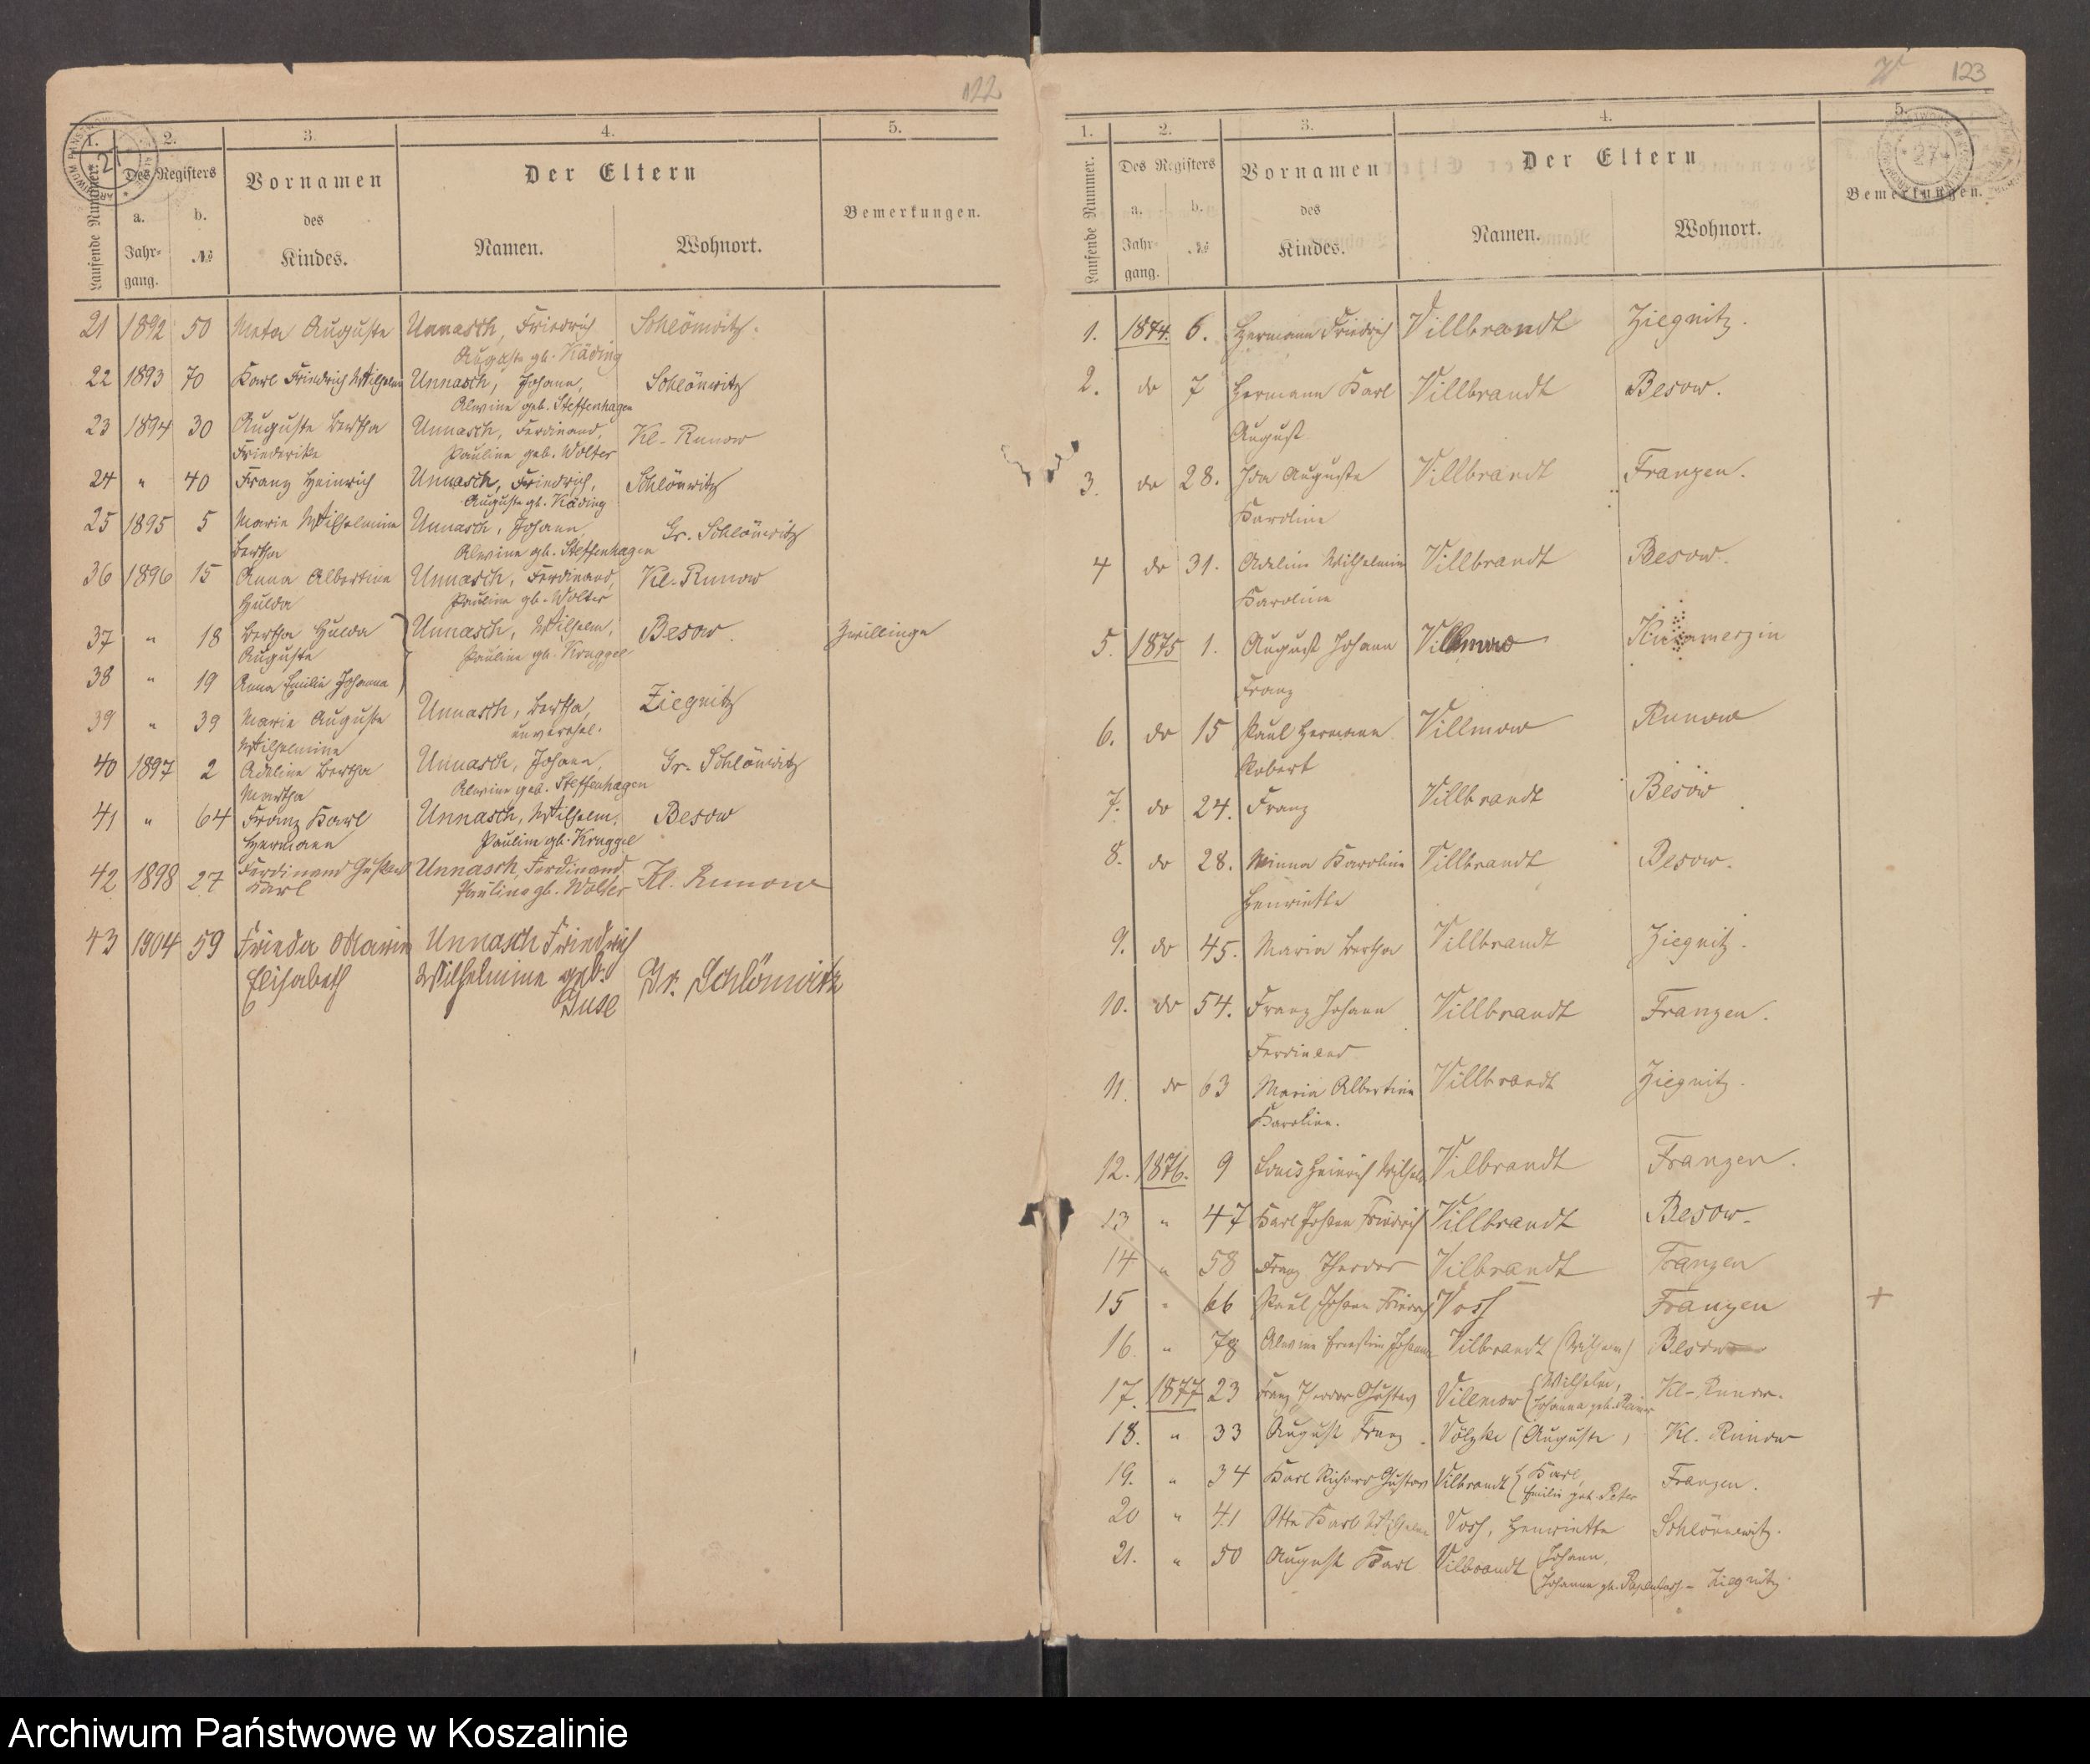 122
1.
2.
3.
4.
5.
Laufende Nummer.
Des Registers
Vornamen
des
Kindes.
Der Eltern
Bemerkungen.
a.
b.
Jahr-
gang.
№
Namen.
Wohnort.
21 1892 50 Meta Auguste Unnasch, Friedrich, Schlönwitz.
Auguste gb. Käding
22 1893 70 Karl Friedrich Wilhelm Unnasch, Johann, Schlönwitz
Alwine geb. Steffenhagen
23 1894 30 Auguste Bertha Unnasch, Ferdinand, Kl- Runow
Friederike Pauline geb. Wolter
24 " 40 Franz Heinrich Unnasch, Friedrich, Schlönwitz
Auguste gb. Käding
25 1895 5 Marie Wilhelmine Unnasch, Johann, Gr. Schlönwitz
Bertha Alwine gb. Steffenhagen
36 1896 15 Anna Albertine Unnasch, Ferdinand, Kl. Runow
Hulda Pauline gb. Wolter
37 " 18 Bertha Hulda Unnasch, Wilhelm, Besow. Zwillinge
Auguste Pauline gb. Kruggel
38 " 19 Anna Emilie Johanna
39 " 39 Marie Auguste Unnasch, Bertha, Ziegnitz
Wilhelmine unverehel.
40 1897 2 Adeline Bertha Unnasch, Johann, Gr. Schlönwitz
Martha Alwine geb. Steffenhagen
41 " 64 Franz Karl Unnasch, Wilhelm, Besow
Hermann Pauline gb. Kruggel
42 1898 27 Ferdinand Gustav Unnasch, Ferdinand Kl. Runow
Karl Pauline gb. Wolter
43 1904 59 Frieda Marie Unnasch Friedrich
Elisabeth Wilhelmine geb. Gr. Schlönwitz
Guse
123
1.
2.
3.
4.
5.
Laufende Nummer.
Des Registers
Vornamen
des
Kindes.
Der Eltern
Bemerkungen.
a.
b.
Jahr-
gang.
№
Namen.
Wohnort.
1. 1874. 6. Hermann Friedrich Villbrandt Ziegnitz.
2. do 7 Hermann Karl Villbrandt Besow.
August
3. do 28. Ida Auguste Villbrandt Franzen.
Karoline
4 do 31. Adeline Wilhelmine Villbrandt Besow.
Karoline
5. 1875 1. August Johann Villmow
Franz
6. do 15 Paul Hermann Villmow Runow
Robert
7. do 24. Franz Villbrandt Besow
8. do 28. Minna Karoline Villbrandt Besow.
Henriette
9. do 45. Maria Bertha Villbrandt Ziegnitz.
10. do 54. Franz Johann Villbrandt Franzen.
Ferdinand
11. do 63 Maria Albertine Villbrandt Ziegnitz.
Karoline.
12. 1876. 9 Louis Heinrich Wilhelm Vilbrandt Franzen.
13 " 47 Karl Johann Friedrich Villbrandt Besow.
14 " 58 Franz Theodor Vilbrandt Franzen
15 " 66 Paul Johann Friedrich Voss Franzen +
16. " 78 Alwine Ernestine Johanna Vilbrandt (Wilhelm) Besow
17. 1877 23 Franz Theodor Gustav Villmow (Wilhelm, Kl- Runow.
Johanna geb.
18. " 33 August Franz Völzke (Auguste) Kl. Runow
19. " 34 Karl Richard Gustav Vilbrandt (Karl, Franzen.
Emilie geb. Peter
20 " 41 Otto Karl Wilhelm Voss, Henriette Schlönwitz.
21. " 50 August Karl Vilbrandt (Johann,
Johanna gb. - Ziegnitz
Archiwum Państwowe w Koszalinie